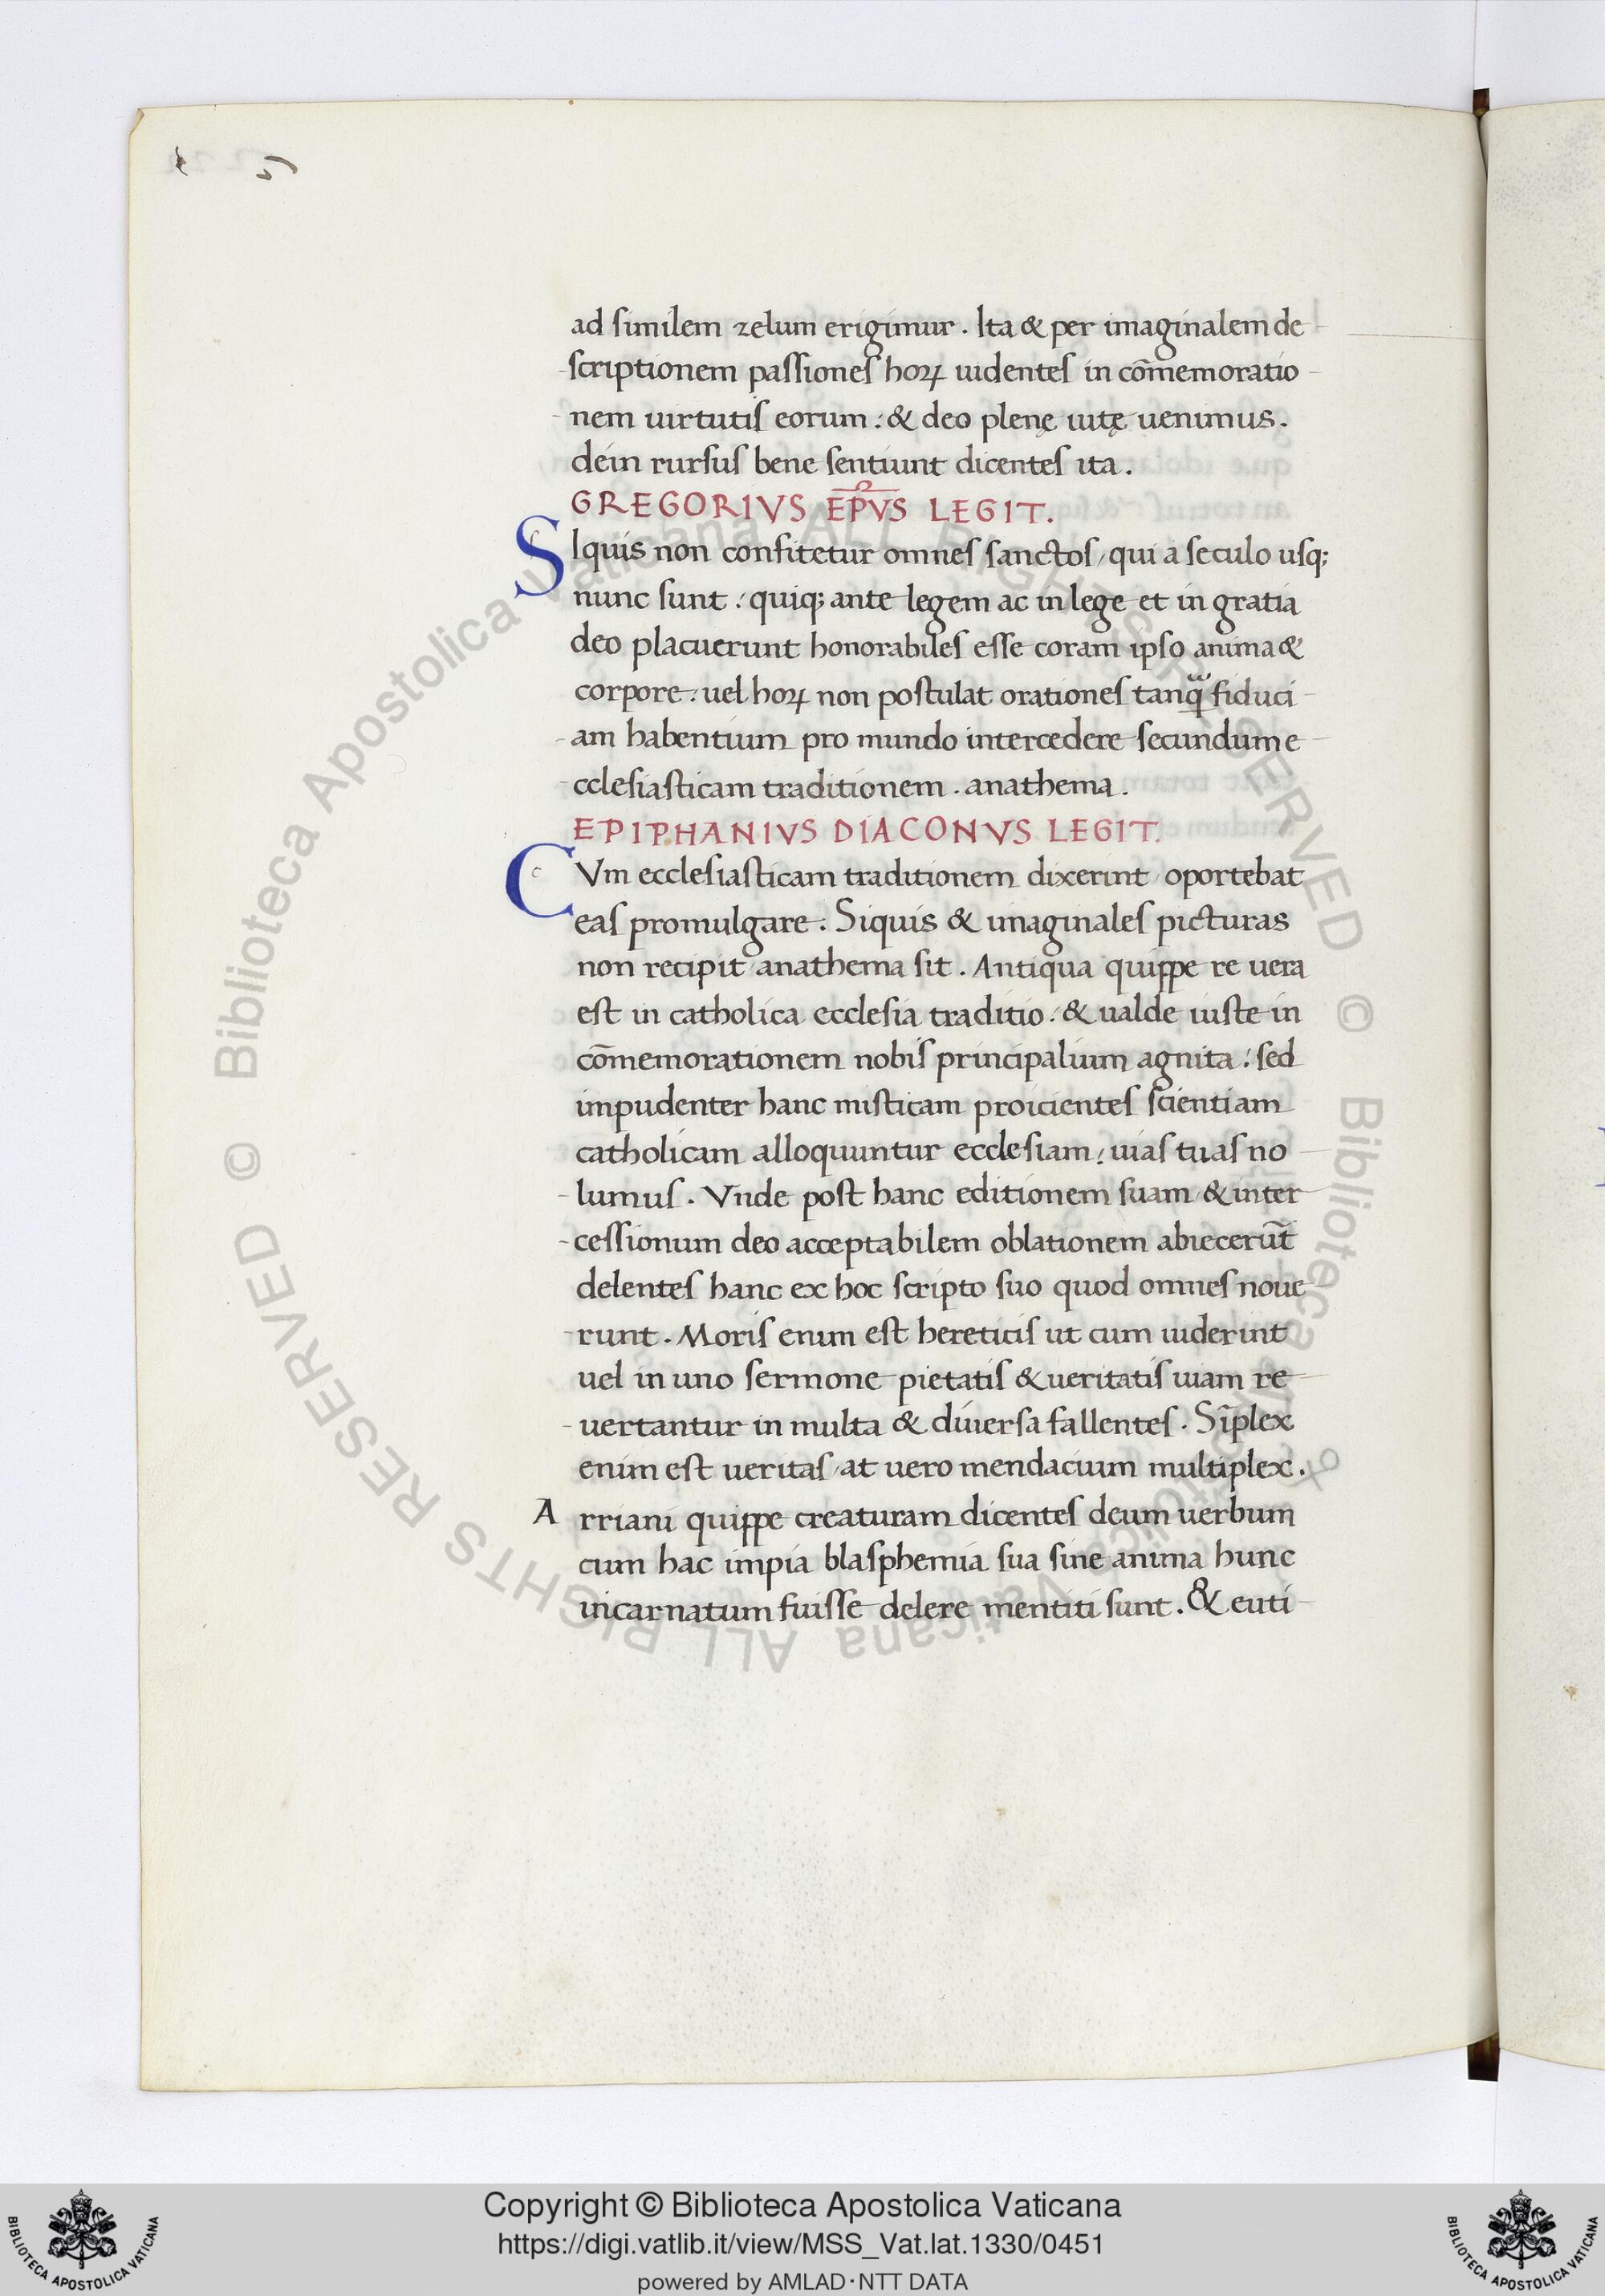 ad similem zelum erigimur. Ita & per imaginalem de
scriptionem passiones hoꝝ uidentes in cōmemoratio
nem uirtutis eorum: & deo plenę uitę uenimus.
dein rursus bene sentiunt dicentes ita.
GREGORIVS EP̄VS LEGIT.
SIquis non confitetur omnes sanctos, qui a seculo usq;
nunc sunt: quiq; ante legem ac in lege et in gratia
deo placuerunt honorabiles esse coram ipso anima &
corpore: uel hoꝝ non postulat orationes tanq̃ fiduci
am habentium pro mundo intercedere secundum e
cclesiasticam traditionem. anathema.
EPIPHANIVS DIACONVS LEGIT.
CVm ecclesiasticam traditionem dixerint, oportebat
eas promulgare. Siquis & imaginales picturas
non recipit, anathema sit. Antiqua quippe re uera
est in catholica ecclesia traditio: & ualde iuste in
cōmemorationem nobis principalium agnita: sed
impudenter hanc misticam proicientes scientiam
catholicam alloquuntur ecclesiam: uias tuas no
lumus. Vnde post hanc editionem suam & inter
cessionum deo acceptabilem oblationem abiecerūt
delentes hanc ex hoc scripto suo quod omnes noue
runt. Moris enim est hereticis ut cum uiderint
uel in uno sermone pietatis & ueritatis uiam re
uertantur in multa & diuersa fallentes. Sīplex
enim est ueritas, at uero mendacium multiplex.
Arriani quippe creaturam dicentes deum uerbum
cum hac impia blasphemia sua sine anima hunc
incarnatum fuisse delere mentiti sunt. & euti
© Biblioteca Apostolica Vaticana ALL RIGHTS RESERVED © Biblioteca Apostolica Vaticana ALL RIGHTS RESERVED
Copyright © Biblioteca Apostolica Vaticana
https://digi.vatlib.it/view/MSS_Vat.lat.1330/0451
powered by AMLAD·NTT DATA
BIBLIOTECA APOSTOLICA VATICANA
BIBLIOTECA APOSTOLICA VATICANA